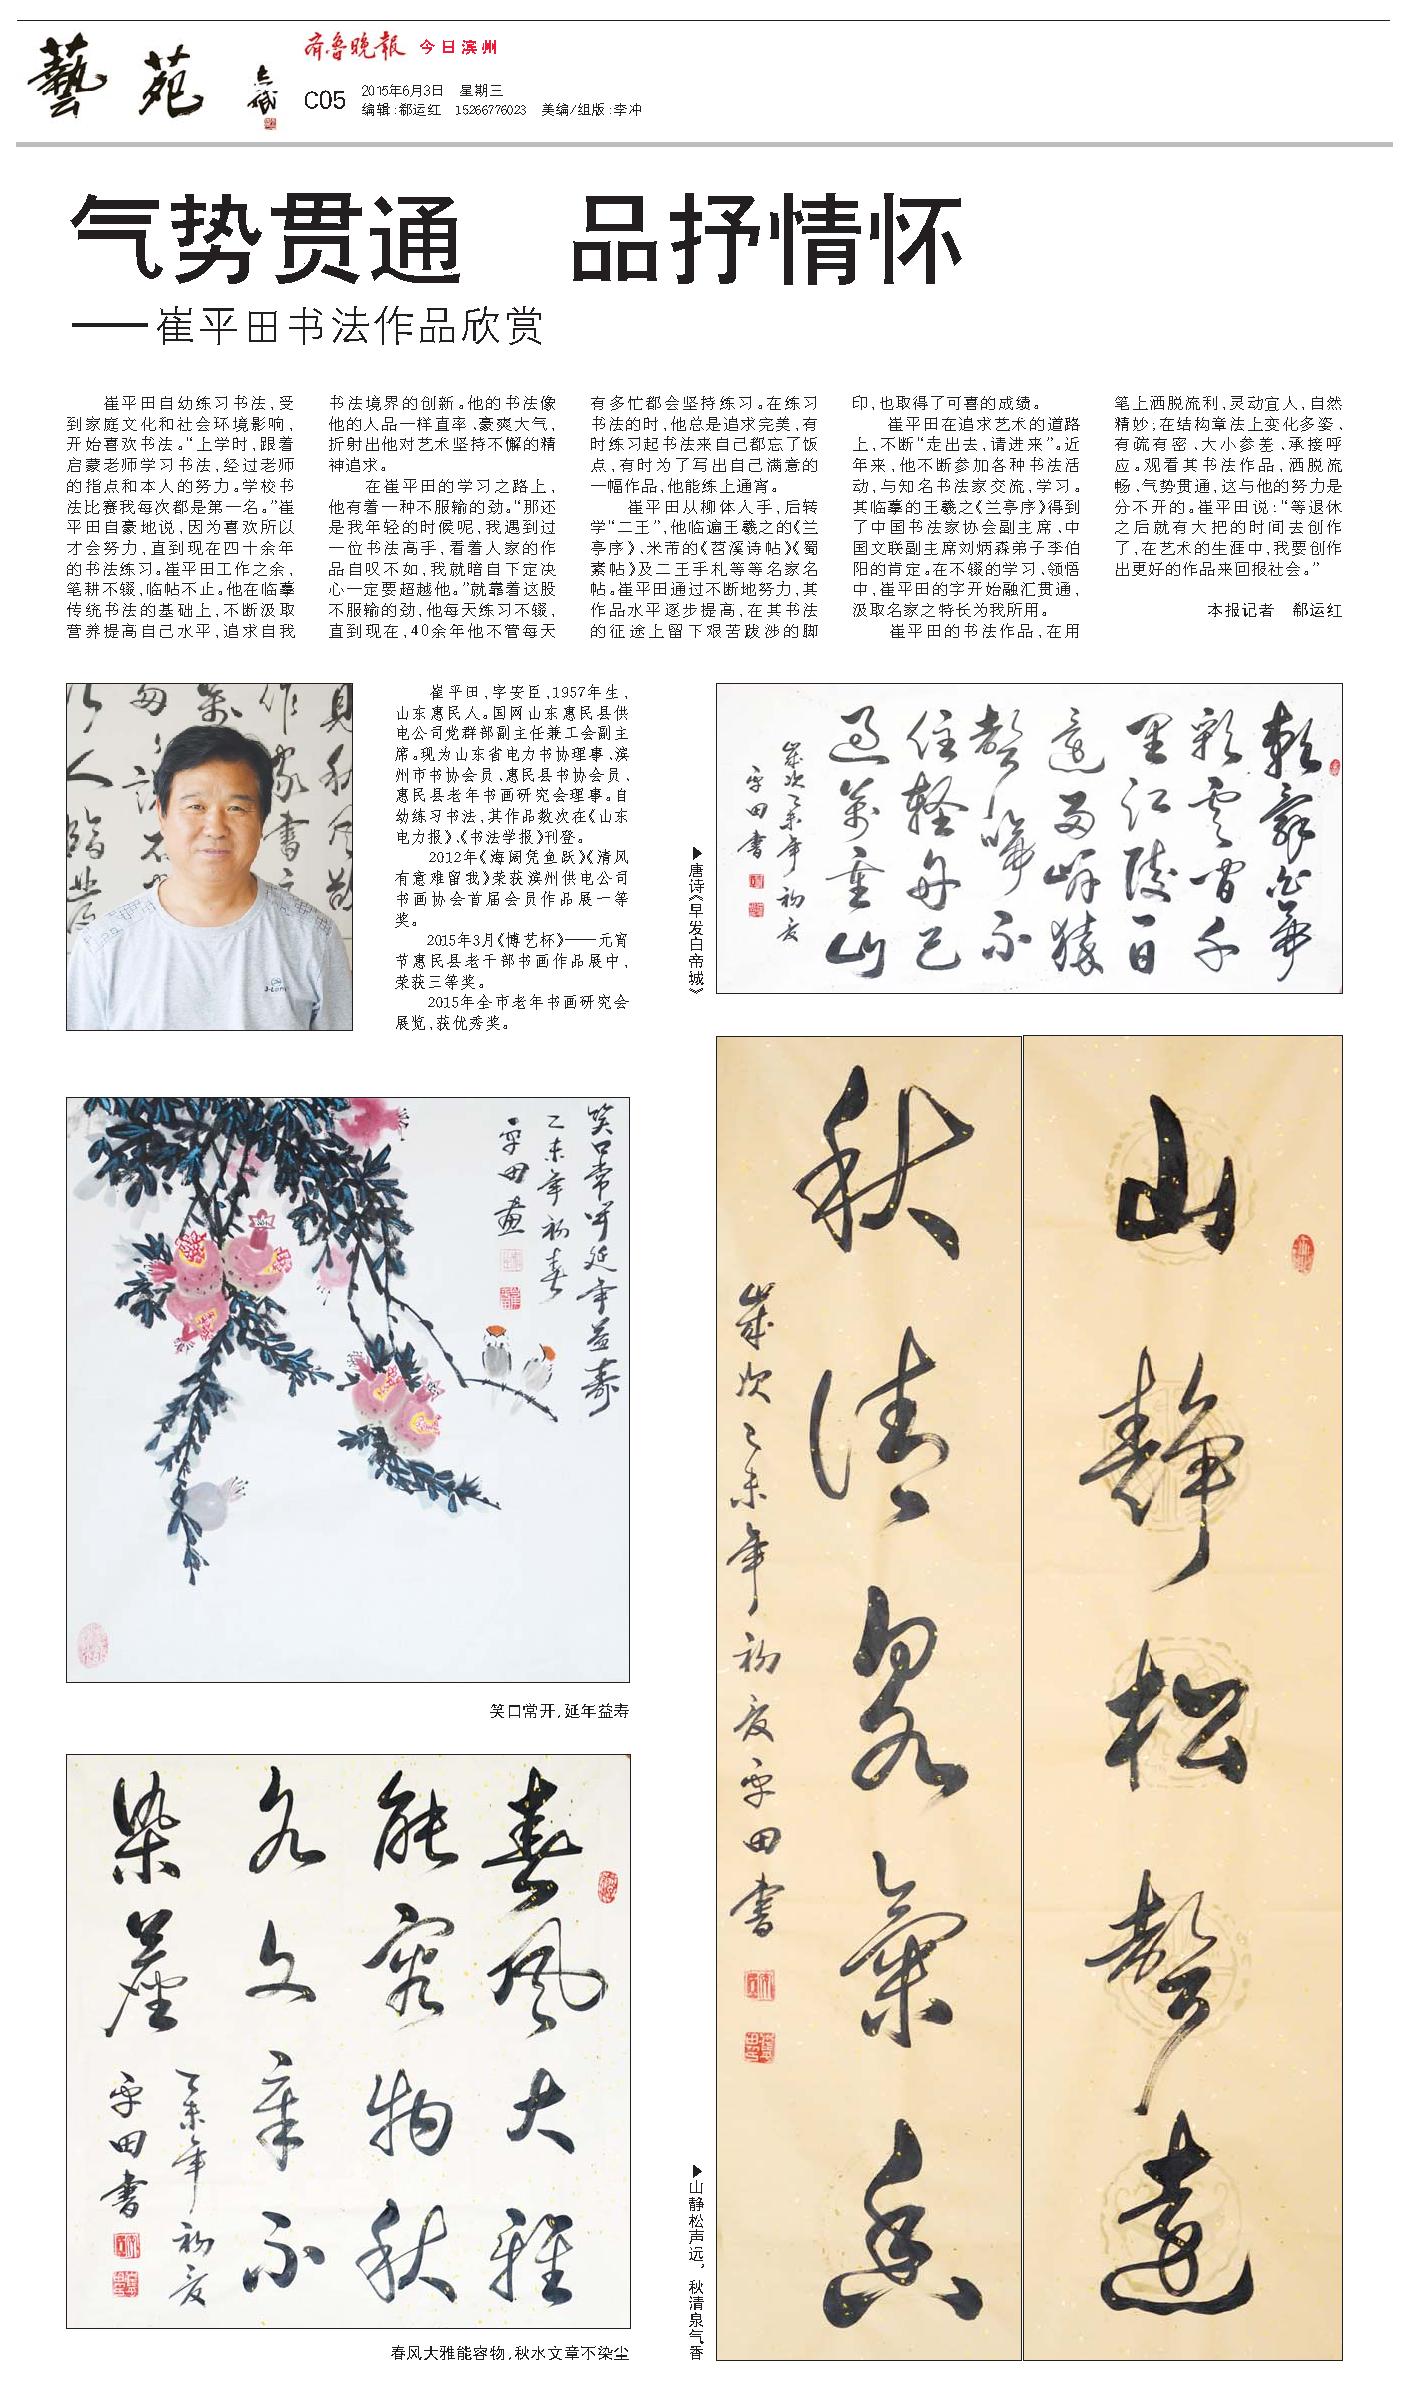 藝 苑
齐鲁晚报 今日滨州
C05
2015年6月3日 星期三
编辑:郗运红 15266776023 美编/组版:李冲
气势贯通 品抒情怀
——崔平田书法作品欣赏
崔平田自幼练习书法,受
到家庭文化和社会环境影响,
开始喜欢书法。“上学时,跟着
启蒙老师学习书法,经过老师
的指点和本人的努力。学校书
法比赛我每次都是第一名。”崔
平田自豪地说,因为喜欢所以
才会努力,直到现在四十余年
的书法练习。崔平田工作之余,
笔耕不辍,临帖不止。他在临摹
传统书法的基础上,不断汲取
营养提高自己水平,追求自我
书法境界的创新。他的书法像
他的人品一样直率、豪爽大气,
折射出他对艺术坚持不懈的精
神追求。
在崔平田的学习之路上,
他有着一种不服输的劲。“那还
是我年轻的时候呢,我遇到过
一位书法高手,看着人家的作
品自叹不如,我就暗自下定决
心一定要超越他。”就靠着这股
不服输的劲,他每天练习不辍,
直到现在,40余年他不管每天
有多忙都会坚持练习。在练习
书法的时,他总是追求完美,有
时练习起书法来自己都忘了饭
点,有时为了写出自己满意的
一幅作品,他能练上通宵。
崔平田从柳体入手,后转
学“二王”,他临遍王羲之的《兰
亭序》、米芾的《苕溪诗帖》《蜀
素帖》及二王手札等等名家名
帖。崔平田通过不断地努力,其
作品水平逐步提高,在其书法
的征途上留下艰苦跋涉的脚
印,也取得了可喜的成绩。
崔平田在追求艺术的道路
上,不断“走出去,请进来”。近
年来,他不断参加各种书法活
动,与知名书法家交流,学习。
其临摹的王羲之《兰亭序》得到
了中国书法家协会副主席、中
国文联副主席刘炳森弟子李伯
阳的肯定。在不辍的学习、领悟
中,崔平田的字开始融汇贯通,
汲取名家之特长为我所用。
崔平田的书法作品,在用
笔上洒脱流利,灵动宜人,自然
精妙;在结构章法上变化多姿、
有疏有密、大小参差、承接呼
应。观看其书法作品,洒脱流
畅、气势贯通,这与他的努力是
分不开的。崔平田说:“等退休
之后就有大把的时间去创作
了,在艺术的生涯中,我要创作
出更好的作品来回报社会。”
本报记者 郗运红
崔平田,字安臣,1957年生,
山东惠民人。国网山东惠民县供
电公司党群部副主任兼工会副主
席。现为山东省电力书协理事、滨
州市书协会员、惠民县书协会员、
惠民县老年书画研究会理事。自
幼练习书法,其作品数次在《山东
电力报》、《书法学报》刊登。
2012年《海阔凭鱼跃》《清风
有意难留我》荣获滨州供电公司
书画协会首届会员作品展一等
奖。
2015年3月《博艺杯》——元宵
节惠民县老干部书画作品展中,
荣获三等奖。
2015年全市老年书画研究会
展览,获优秀奖。
▶唐诗《早发白帝城》
朝辭白帝
彩雲間千
里江陵一日
還兩岸猿
聲啼不
住輕舟已
過萬重山
歲次乙未年初夏
平田書
笑口常開延年益壽
乙未年初春
平田画
笑口常开,延年益寿
山静松聲遠
秋清泉氣香
歲次乙未年初夏平田書
▶山静松声远,秋清泉气香
春風大雅
能容物秋
水文章不
染塵
乙未年初夏
平田書
春风大雅能容物,秋水文章不染尘